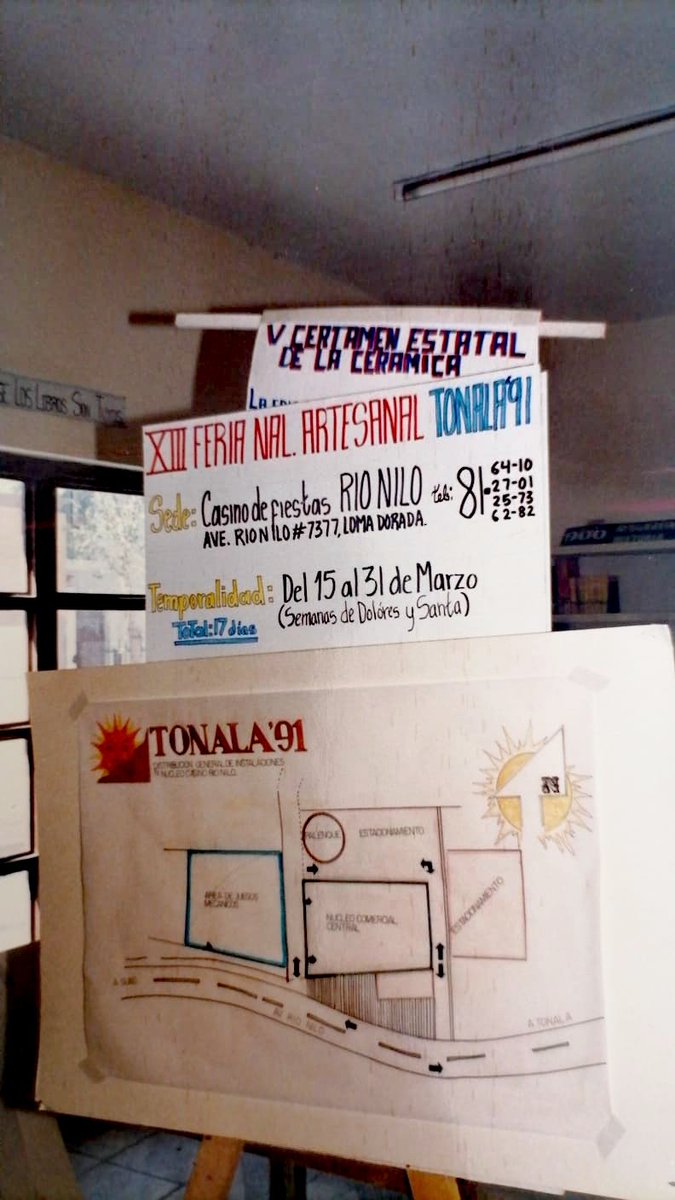 V CERTAMEN ESTATAL
DE LA CERAMICA
XIII FERIA NAL. ARTESANAL TONALA'91
Sede: Casino de fiestas RIO NILO tels: 81-64-10
27-01
25-73
62-82
AVE. RIO NILO #7377, LOMA DORADA.
Temporalidad: Del 15 al 31 de Marzo
(Semanas de Dolóres y Santa)
ToTal: 17 días
Los Libros Son
TONALA'91
DISTRIBUCION GENERAL DE INSTALACIONES
NUCLEO CASINO RIO NILO.
N
PALENQUE
ESTACIONAMIENTO
AREA DE JUEGOS
MECANICOS
NUCLEO COMERCIAL
CENTRAL
ESTACIONAMIENTO
A GUAD
AV. RIO NILO
A TONALA
900
HISTORIA